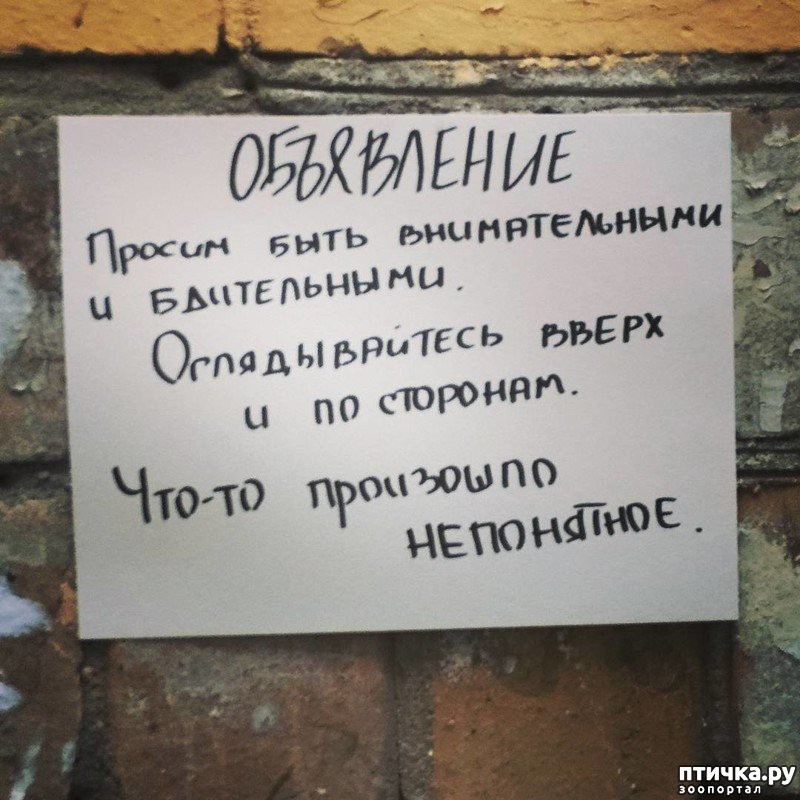 ОБЪЯВЛЕНИЕ
Просим быть внимательными
и бдительными.
Оглядывайтесь вверх
и по сторонам.
Что-то произошло
непонятное.
птичка.ру
зоопортал